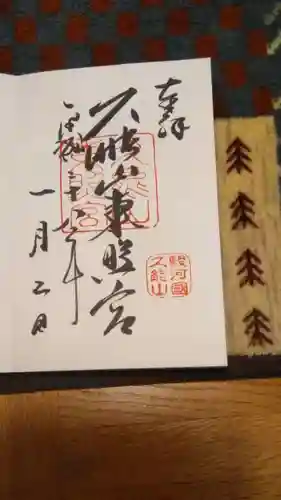 奉拝
久能山東照宮
駿河國
久能山
平成二十八年
一月二日